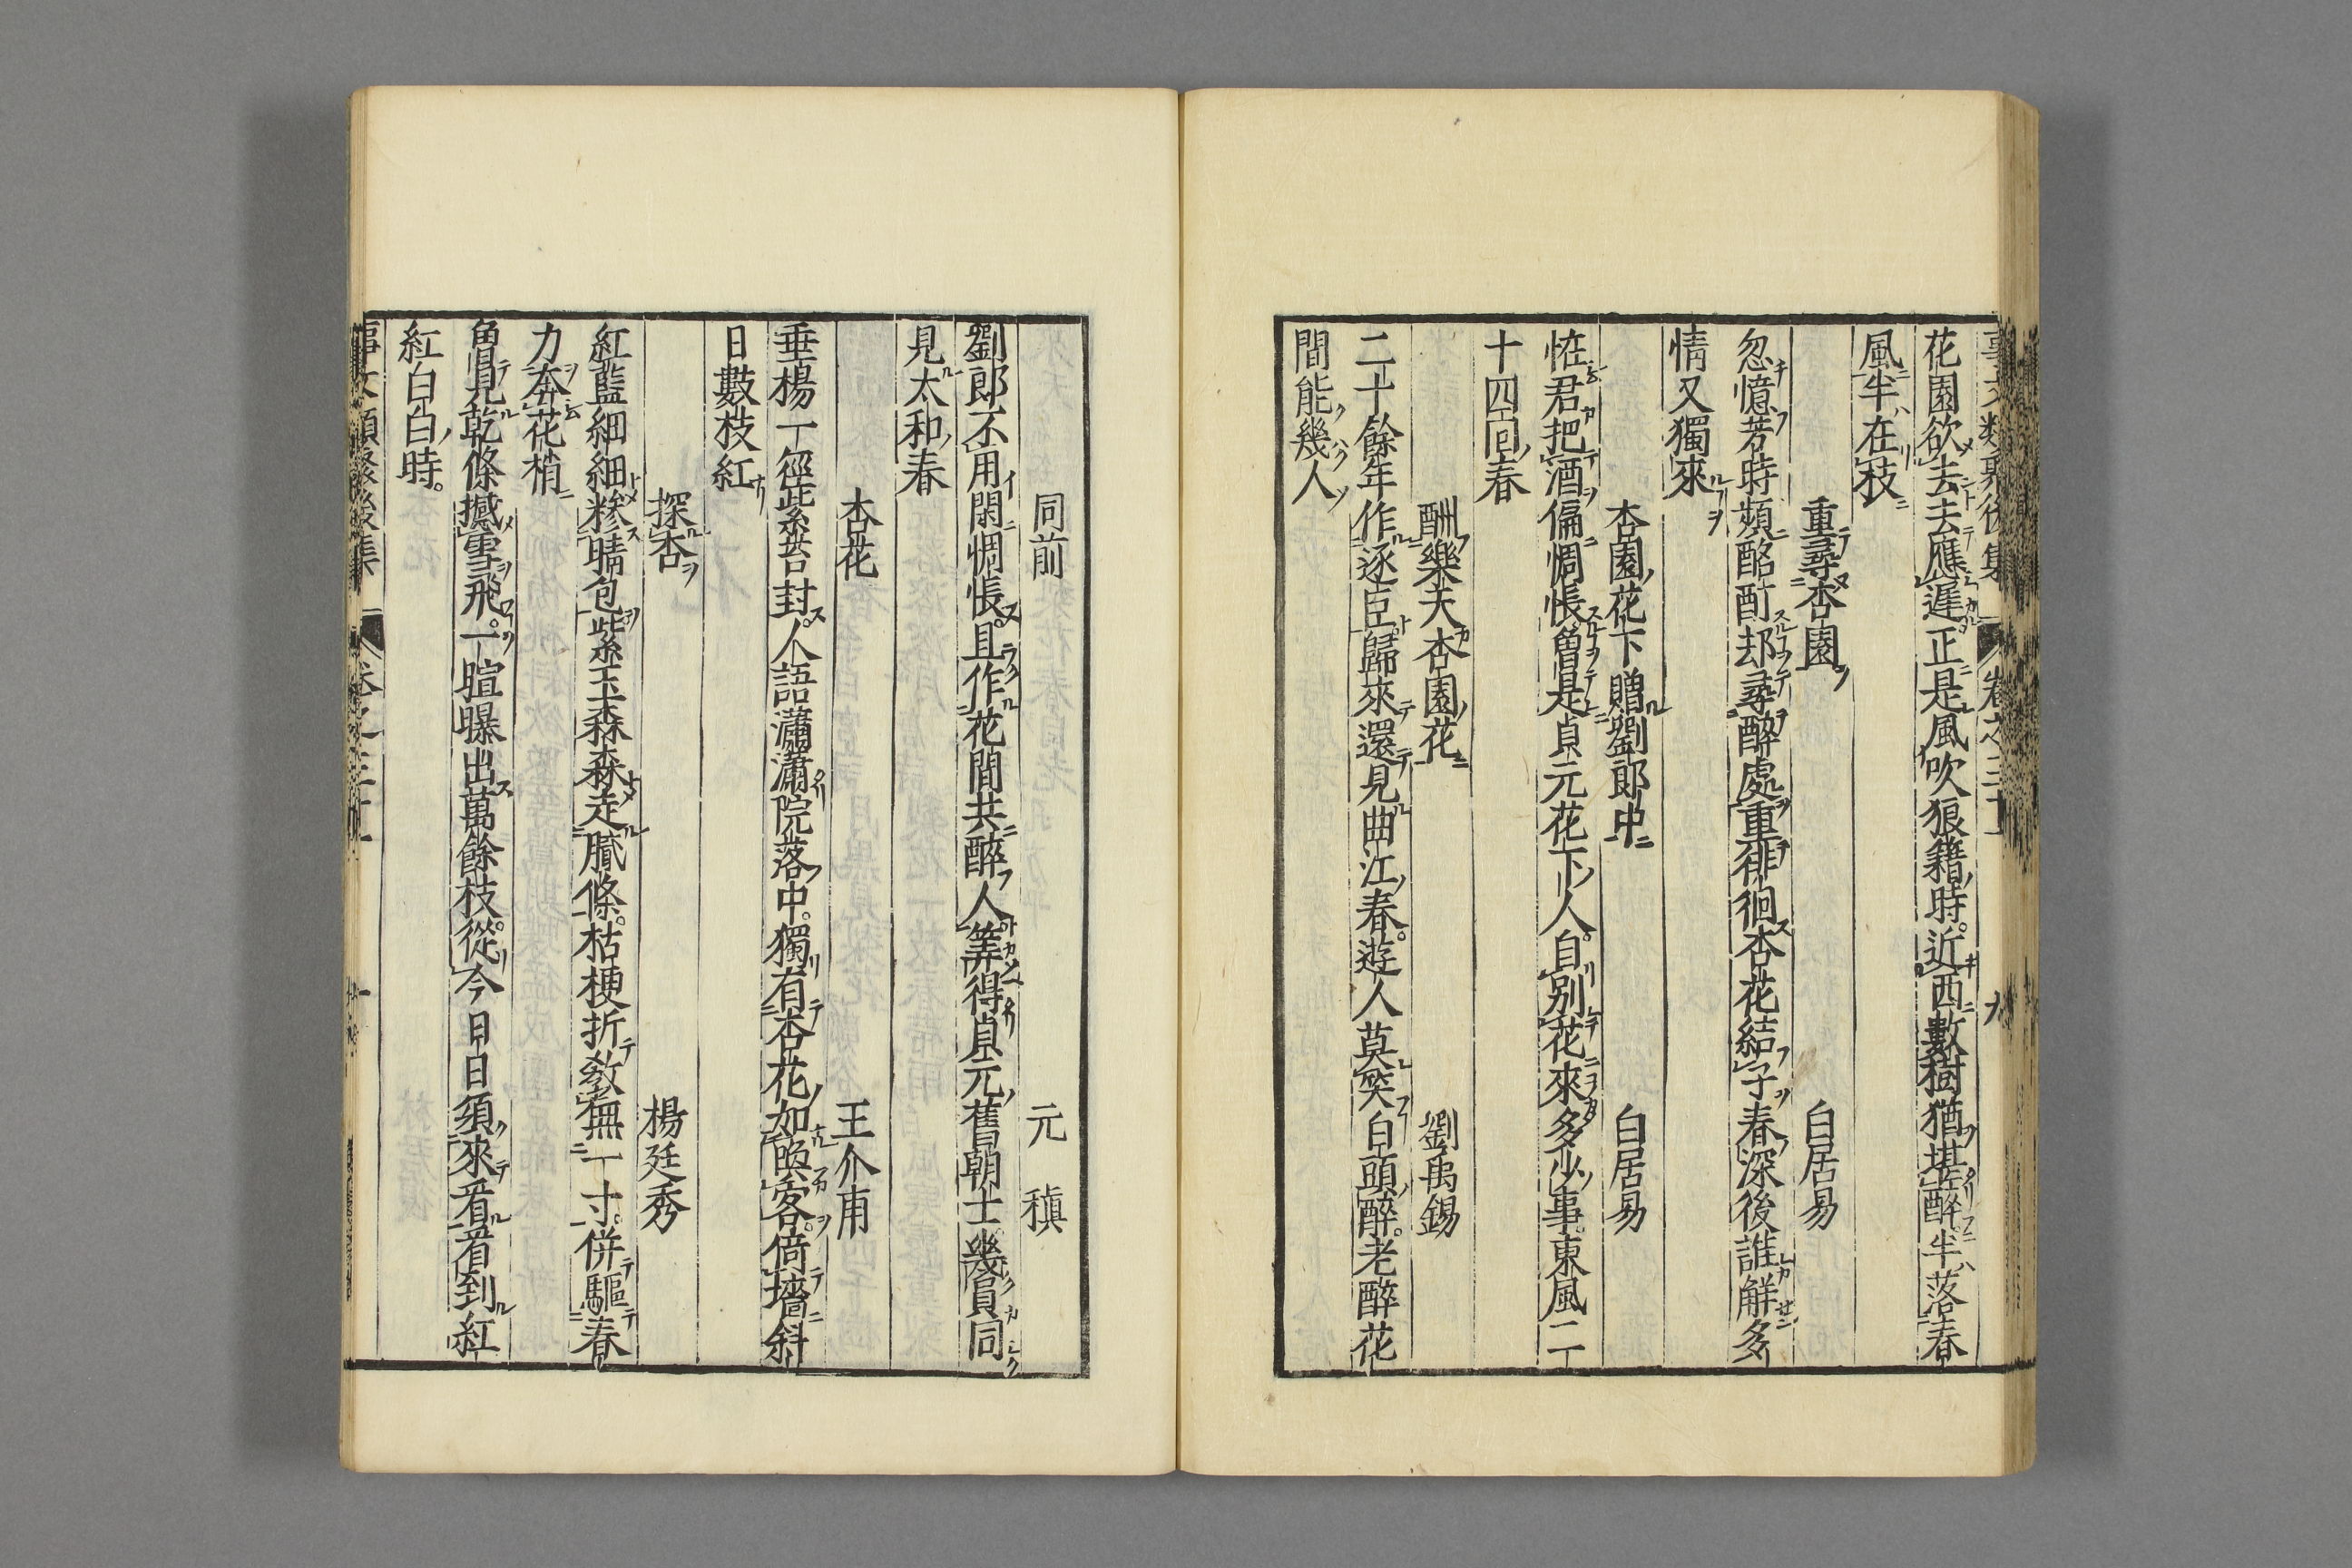 花園欲去去應遲正是風吹狼籍時。近西數樹猶堪醉。半落春
風半在枝
重尋杏園 白居易
忽憶芳時頻酩酊却尋醉處重徘徊杏花結子春深後誰解多
情又獨來
杏園花下贈劉郎中 白居易
恠君把酒偏惆悵曾是貞元花下人。自別花來多少事。東風二
十四回春
酬樂天杏園花 劉禹錫
二十餘年作逐臣。歸來還見曲江春。遊人莫笑白頭醉。老醉花
間能幾人
同前 元稹
劉郎不用閑惆悵。且作花間共醉人。筭得貞元舊朝士。幾員同
見太和春
杏花 王介甫
垂楊一徑紫苔封。人語瀟瀟院落中。獨有杏花如喚客。倚墻斜
日數枝紅
探杏 楊廷秀
紅藍細細糝晴包紫玉森森走膩條。枯梗折敎無一寸。併驅春
力奔花梢
曾見乾條撼雪飛。一暄曝出萬餘枝。從今日日須來看看到紅
紅白白時。